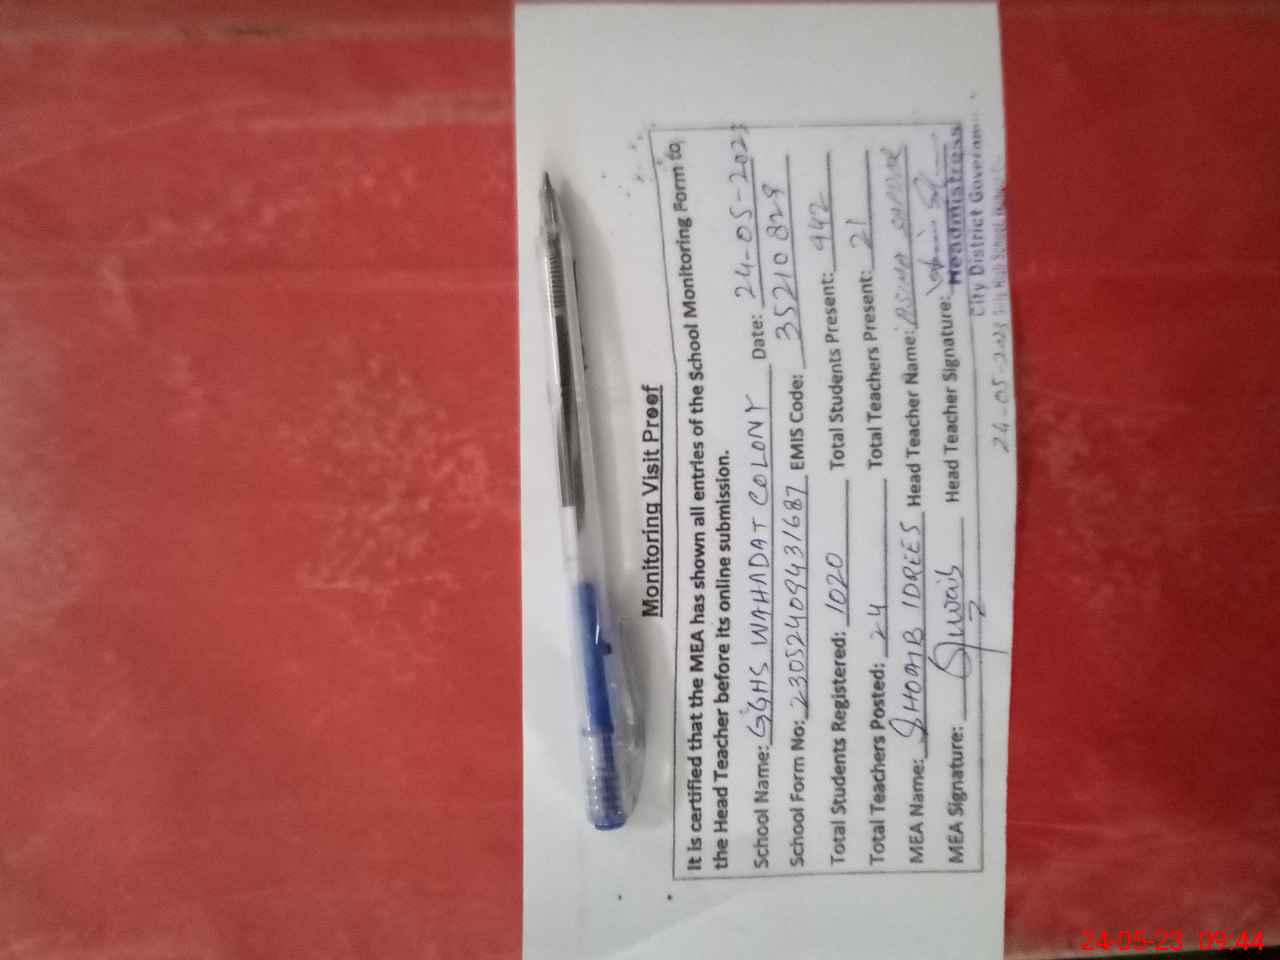 Monitoring Visit Proof
It is certified that the MEA has shown all entries of the School Monitoring Form to
the Head Teacher before its online submission.
School Name: GGHS WAHADAT COLONY Date: 24-05-2023
School Form No: 23052409431687 EMIS Code: 35210829
Total Students Registered: 1020 Total Students Present: 942
Total Teachers Posted: 24 Total Teachers Present: 21
MEA Name: SHOAIB IDREES Head Teacher Name: ASMA
MEA Signature: Head Teacher Signature:
Headmistress
City District Government
24-05-2023 High School
24-05-23 09:44